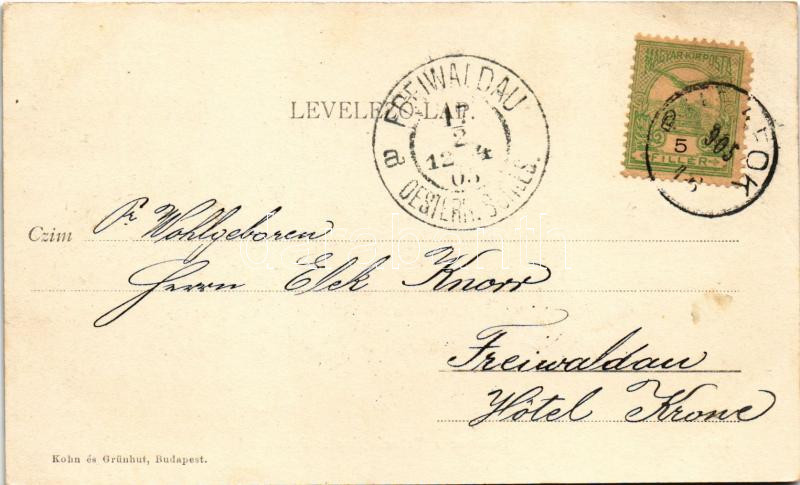 MAGYAR KIR. POSTA
5
FILLER
FOK
905
LEVELEZŐ-LAP.
FREIWALDAU
17
2
12 4
05
a
OESTERR. SCHLES.
Czim Sr. Wohlgeboren
Herrn Elek Knorr
Freiwaldau
Hôtel Krone
Kohn és Grünhut, Budapest.